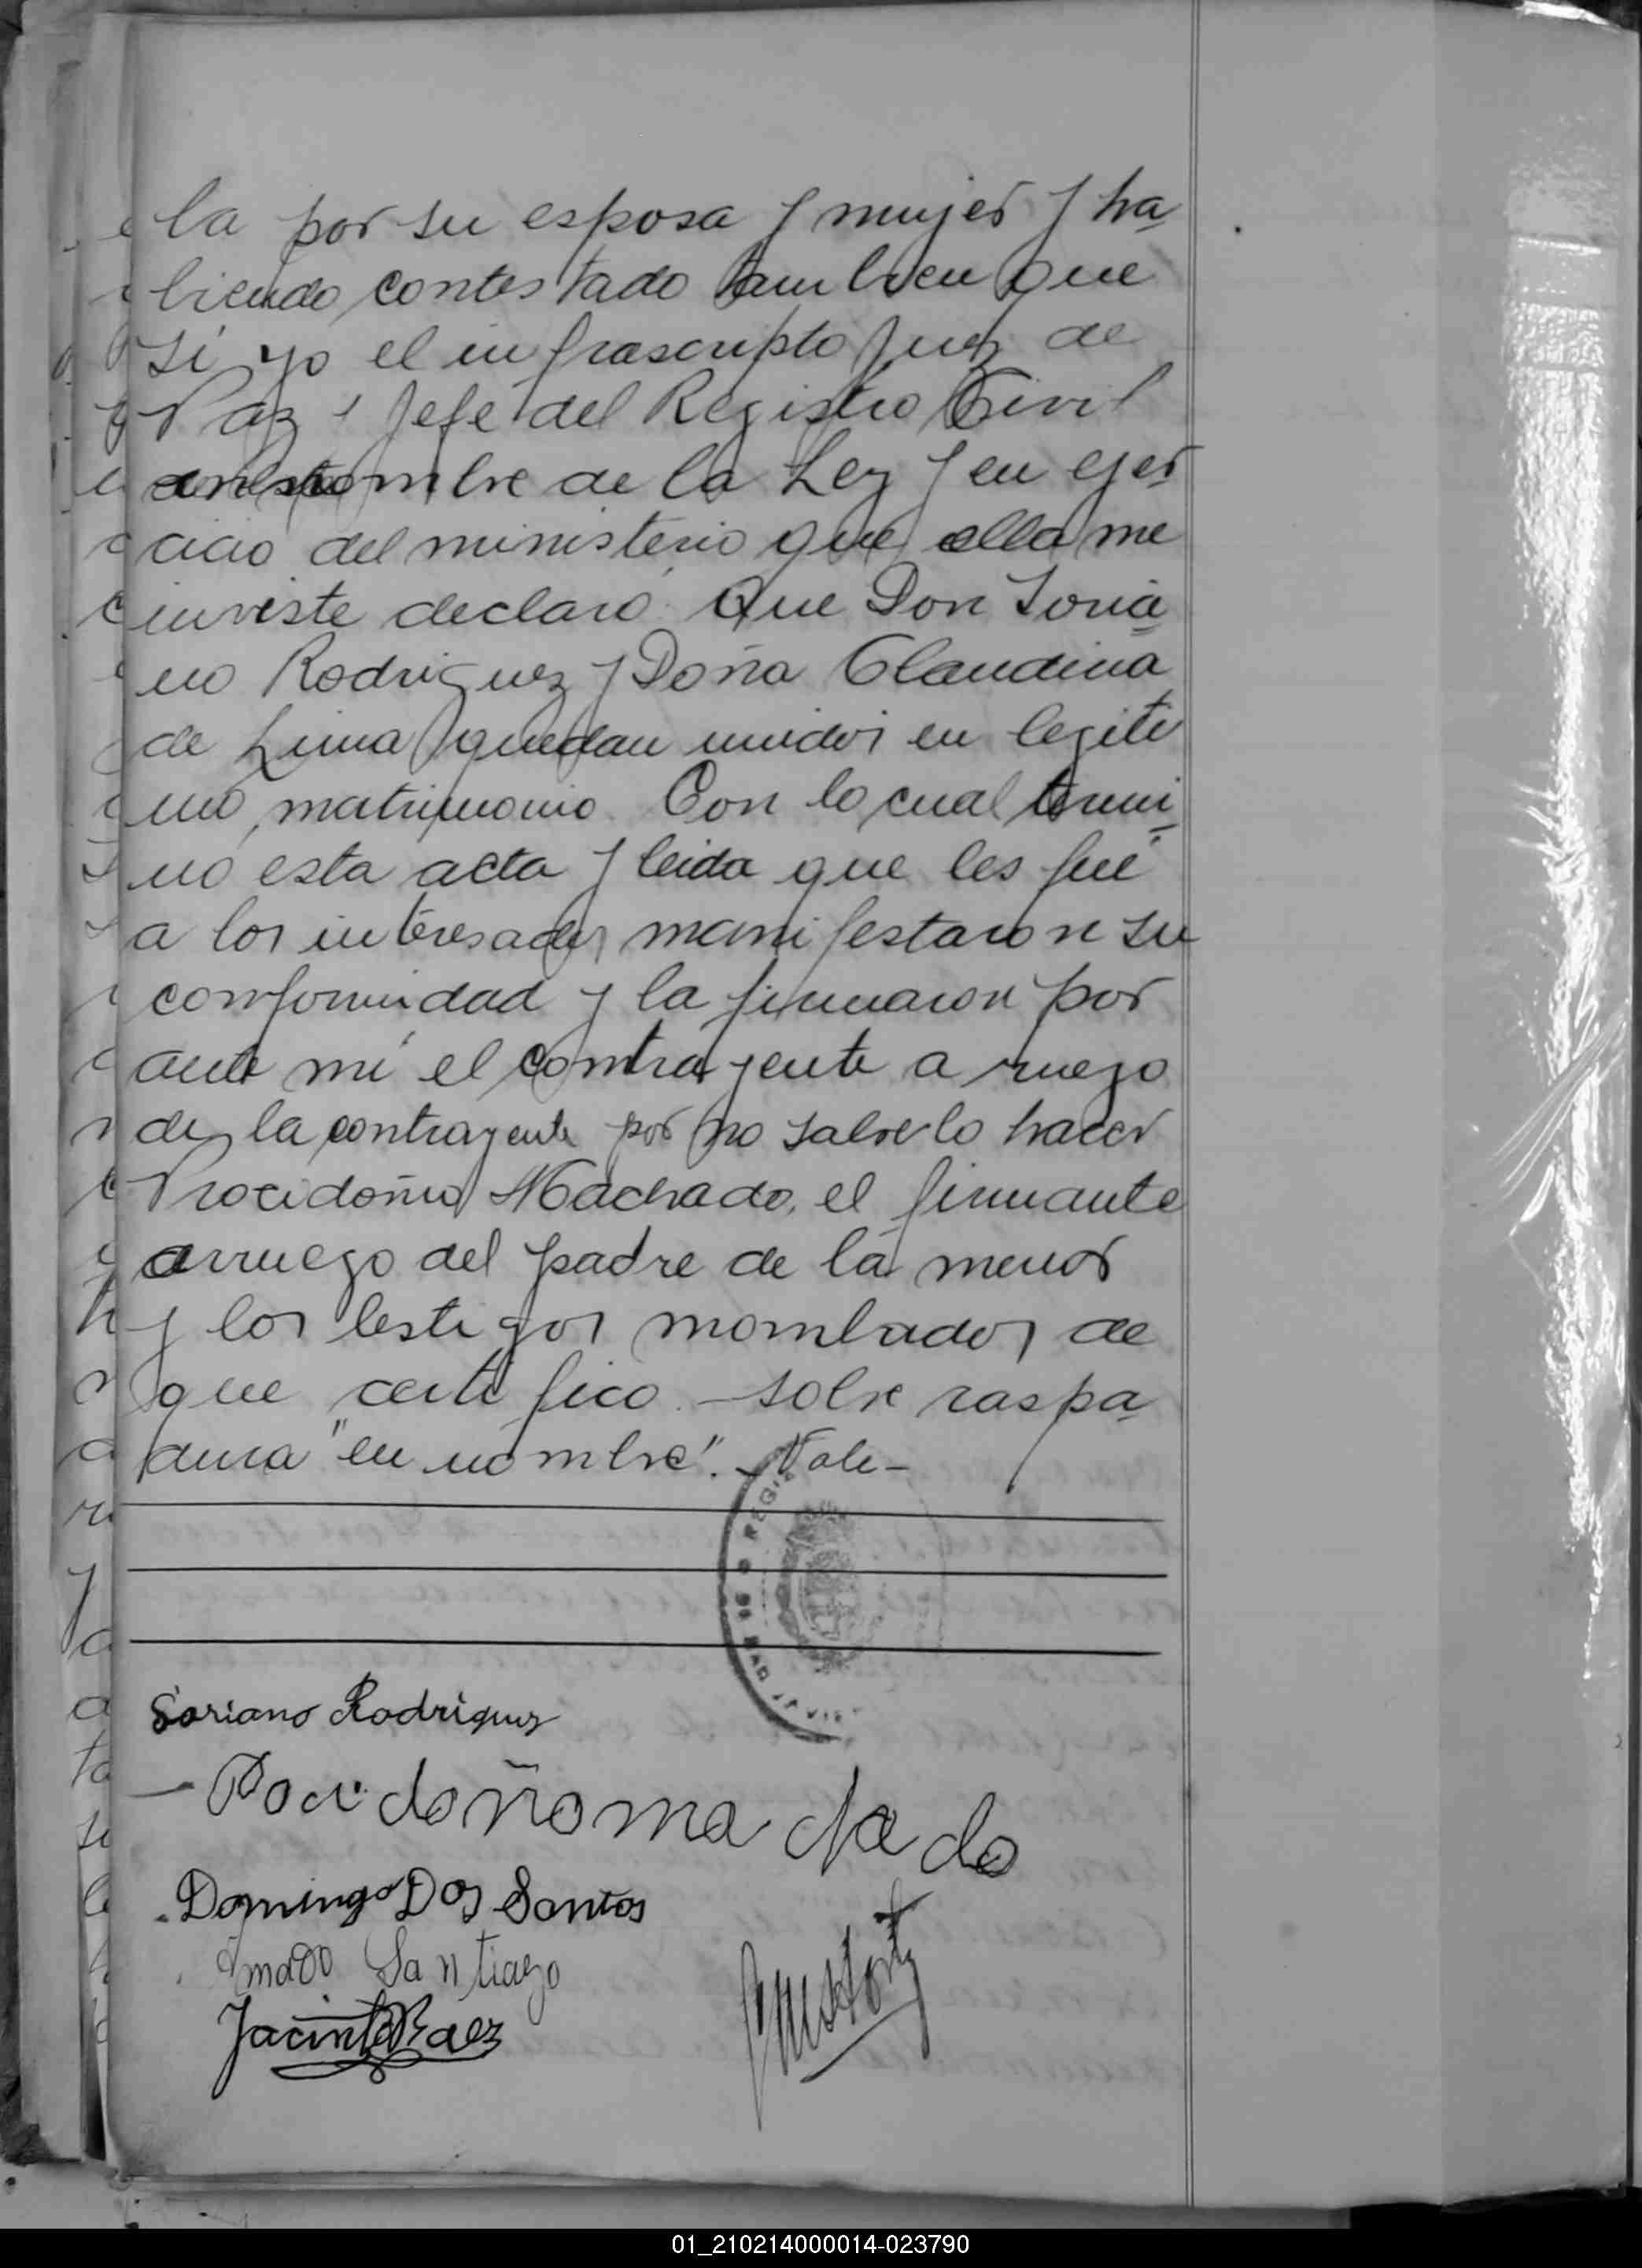 la por su esposa y mujer y ha
biendo contestado tambien que
si yo el infrascripto Juez de
Paz y Jefe del Registro Civil
en nombre de la Ley y en ejer
cicio del ministerio que ella me
inviste declaro: Que Don Soria
no Rodriguez y Doña Claudina
de Lima quedan unidos en legiti
mo matrimonio. Con lo cual termi
nó esta acta y leida que les fué
a los interesados manifestaron su
conformidad y la firmaron por
ante mi el contrayente a ruego
de la contrayente por no saberlo hacer
Procidoño Machado, el firmante
arruego del padre de la menor
y los testigos nombrados de
que certifico. - Sobre raspa
dura "en nombre". - Vale -
Soriano Rodriguez
Domingo Dos Santos
Amado Santiago
Jacinto Baez
01_210214000014-023790